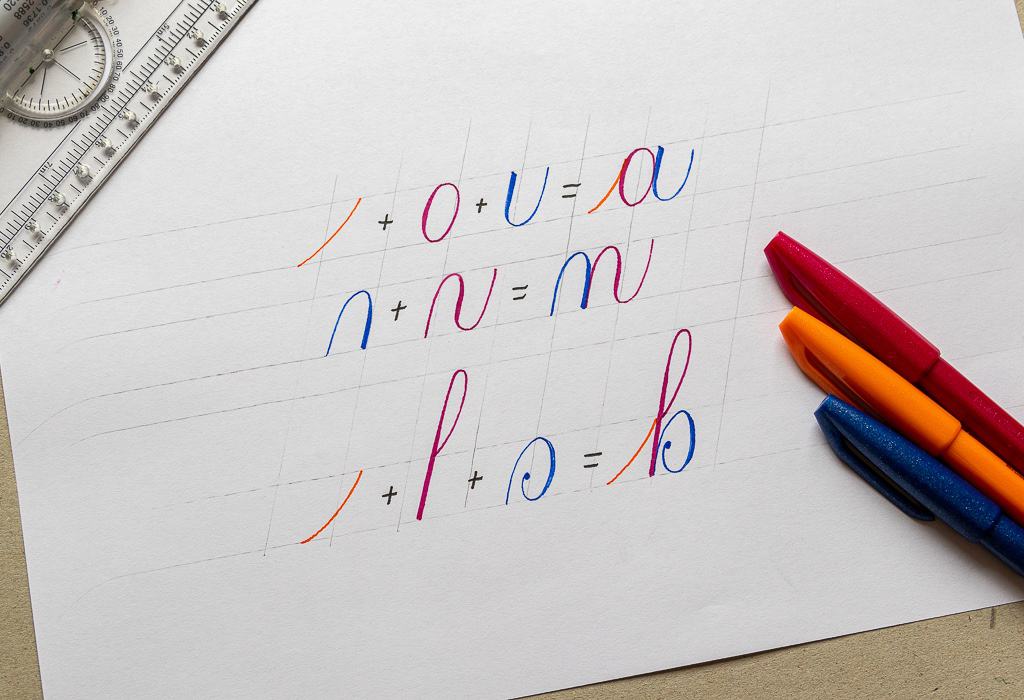 / + o + u = a
n + n = m
/ + l + ɔ = b